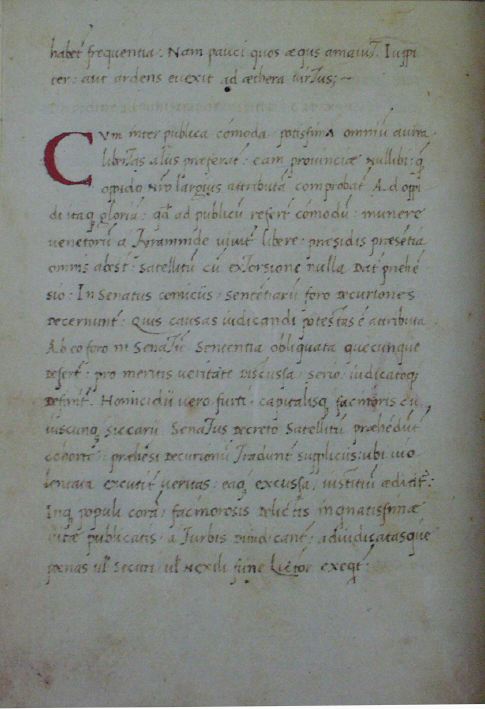 habet frequentia: Nam pauci quos æqus amauit. Iuppi
ter: aut ardens euexit ad æthera uirtus;~
Cvm inter publica cómoda potissima omniũ aurea
libertas aliis præferat: eam prouinciæ nullibi: q̃
oppido nr̃o largius attributã comprobat. Ad oppi
di itaq; gloriã: qã ad publicũ referẽ cómodũ: munere
uenetorũ a tyrannide uiuit libere: præsidis præsẽtia
omnis abest: Satellitũ cũ extorsione nulla Dat prehẽ
sio: In Senatus comiciis: sentẽtiarũ foro Decuriones
Decernunt: Quis causas iudicandi potestas ẽ attributa
Ab eo foro in Senatũ Sententia obliquata quẽcunque
Defert: pro meritis ueritate Discussa, serio iudicatoq;
Definit. Homicidii uero furti capitalisq; facinoris cu
iuscunq; siccarii Senatus Decreto Satellitũ præhẽdũt
cohorte: præhẽsi Decurionũ tradunt suppliciis: ubi uio
lentaia excutit ueritas: eaq; excussa, iustitiũ ædicit:
Inq; populi corã: facinorosis Delictis in
uitæ publicatis a turbis Diiudicant: adiudicatasque
pœnas ul Securi ul nexili fune Lictor exeqt: